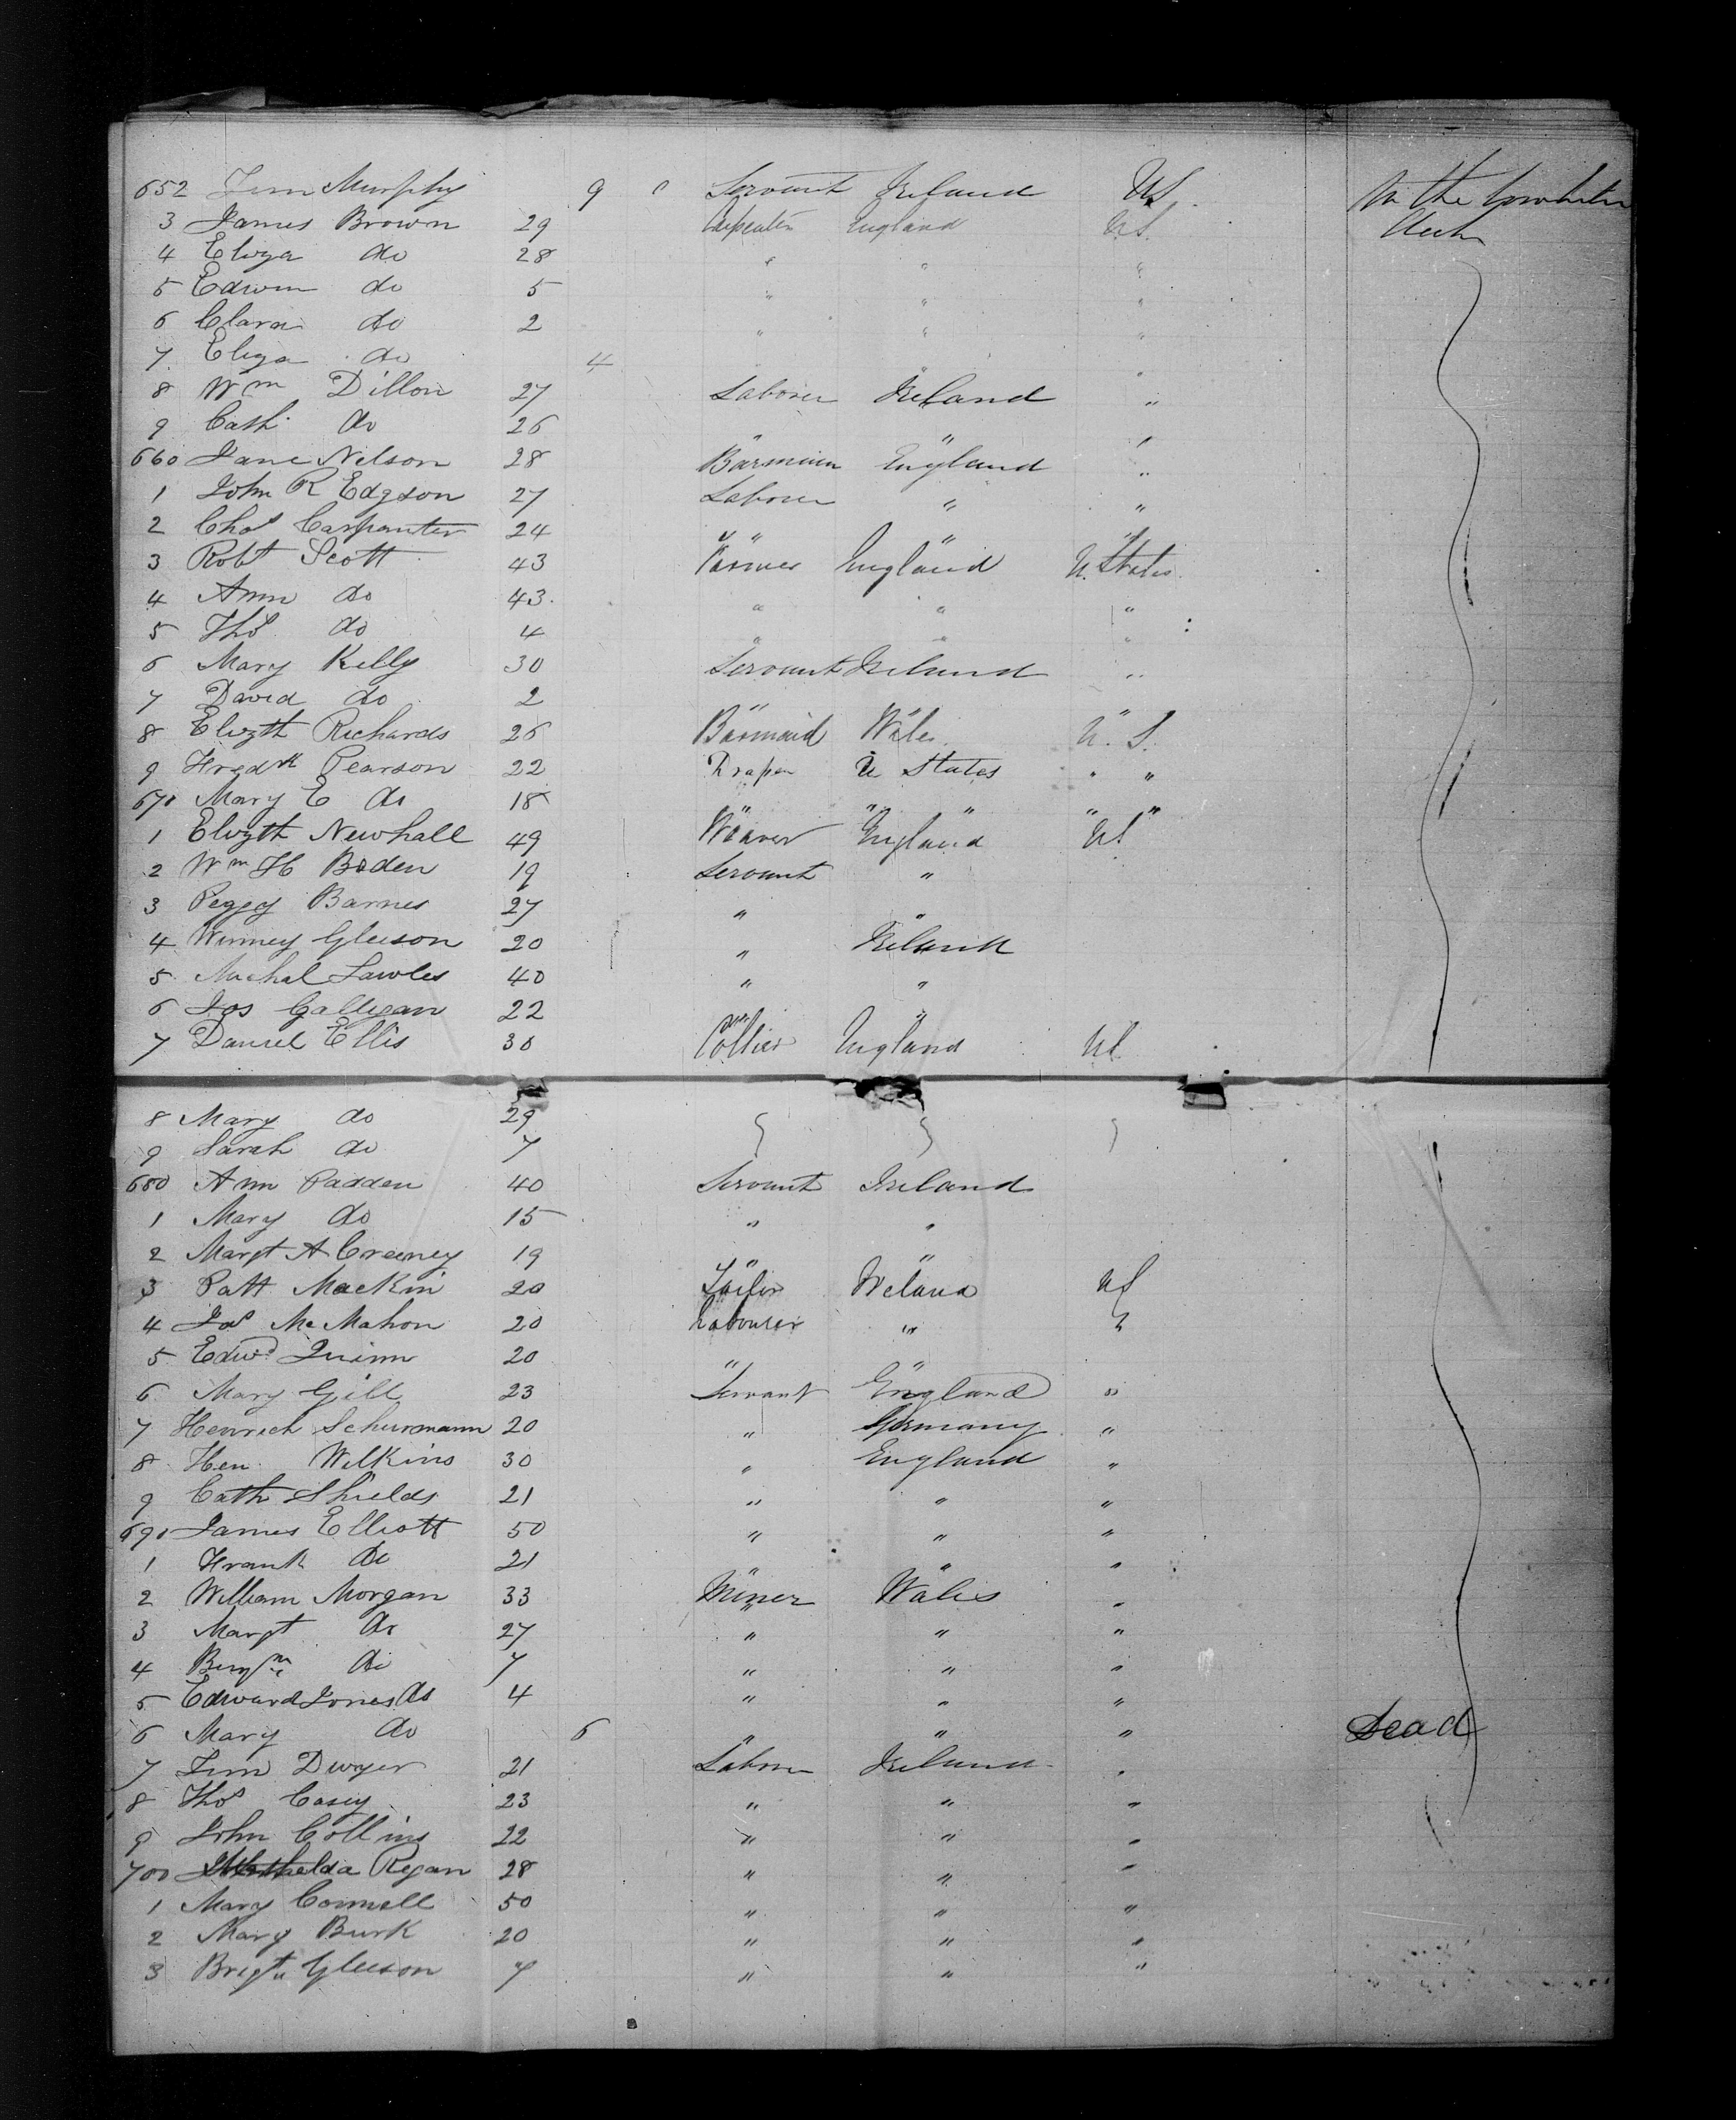 652 Jim Murphy 9 Servant Ireland US In the Forwhater
3 James Brown 29 Carpenter England US Deck
4 Eliza do 28 " " "
5 Edwin do 5 " " "
6 Clara do 2 " " "
7 Eliza do 4 " " "
8 Wm Dillon 27 Laborer Ireland "
9 Cath do 26 " " "
660 Jane Nelson 28 England "
1 John R Edgson 27 Laborer " "
2 Chas Carpenter 24 " " "
3 Robt Scott 43 Farmer England U. States
4 Ann do 43 " " "
5 Thos do 4 " " "
6 Mary Kelly 30 Servant Ireland "
7 David do 2 " " "
8 Elizth Richards 26 Barmaid Wales U. S.
9 Fredk Pearson 22 Draper U States " "
670 Mary E do 18 " " " " "
1 Elizth Newhall 49 Weaver England US
2 Wm H Boden 19 Servant "
3 Peggy Barnes 27 " "
4 Winney Gleeson 20 " Ireland
5 Michal Lawles 40 " "
6 Jos Galligan 22 " "
7 Daniel Ellis 30 Collier England US
8 Mary do 29 " " "
9 Sarah do 7
680 Ann Padden 40 Servant Ireland
1 Mary do 15 " "
2 Margt A Creeney 19 " "
3 Patt Mackin 20 Tailor Ireland US
4 Jas McMahon 20 Labourer " "
5 Edwd Quinn 20 " "
6 Mary Gill 23 Servant England "
7 Henrich Schurmann 20 " Germany "
8 Hen Wilkins 30 " England "
9 Cath Shields 21 " " "
690 James Elliott 50 " " "
1 Frank do 21 " " "
2 William Morgan 33 Miner Wales "
3 Margt do 27 " " "
4 Benjmn do 7 " " "
5 Edward Jones do 4 " " "
6 Mary do 6 " " " Dead
7 Jim Dwyer 21 Laborer Ireland "
8 Thos Casey 23 " " "
9 John Collins 22 " " "
700 Regan 28 " " "
1 Mary Connell 50 " " "
2 Mary Burk 20 " " "
3 Brigt Gleeson 7 " " "